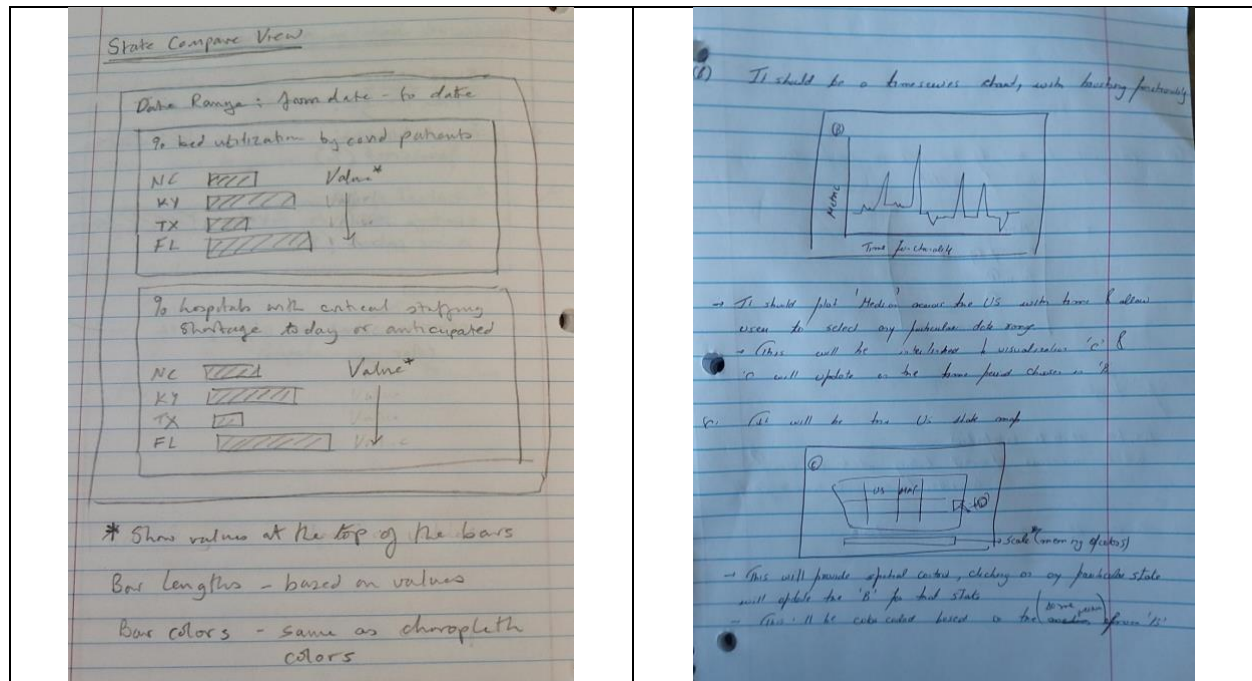 State Compare View
Date Range : from date - to date
% bed utilization by covid patients
NC Value*
KY
TX
FL
% hospitals with critical staffing
shortage today or anticipated
NC Value*
KY
TX
FL
* Show values at the top of the bars
Bar lengths - based on values
Bar colors - same as choropleth
colors
It should be a timeseries chart, with brushing functionality
B
Metric
Time
→ It should plot 'Median' across the US with time & allow
user to select any particular date range
→ This will be interlinked to visualization 'C' &
'C' will update on the time period chosen in 'B'
It will be the US state map
C
US MAP
→ scale* (meaning of colors)
→ This will provide spatial context, clicking on any particular state
will update the 'B' for that state
- This'll be color coded based on the from 'B'